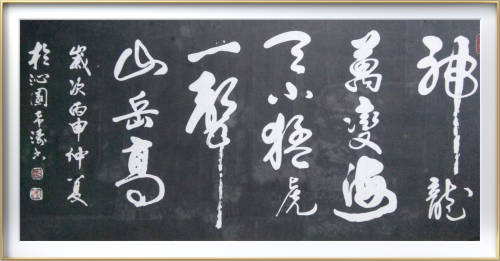 神龍
萬變海
天小猛虎
一聲
山岳高
歲次丙申仲夏
於沁園